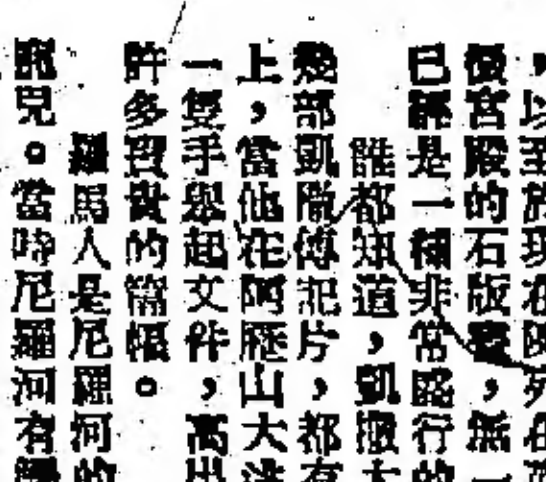 ，以至於現在
宮殿的石版，無一
已經是一種非常盛行的
誰都知道，凱撒大
幾部凱撒傳記片，都有
上，當他在阿歷山大
一隻手舉起文件，高出
許多寶貴的篇幅。
羅馬人是尼羅河的
寵兒。當時尼羅河有